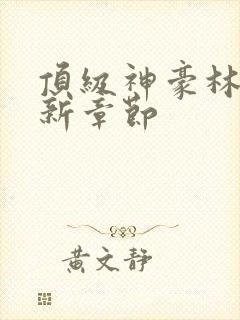 頂級神豪林
新章節
黃文靜